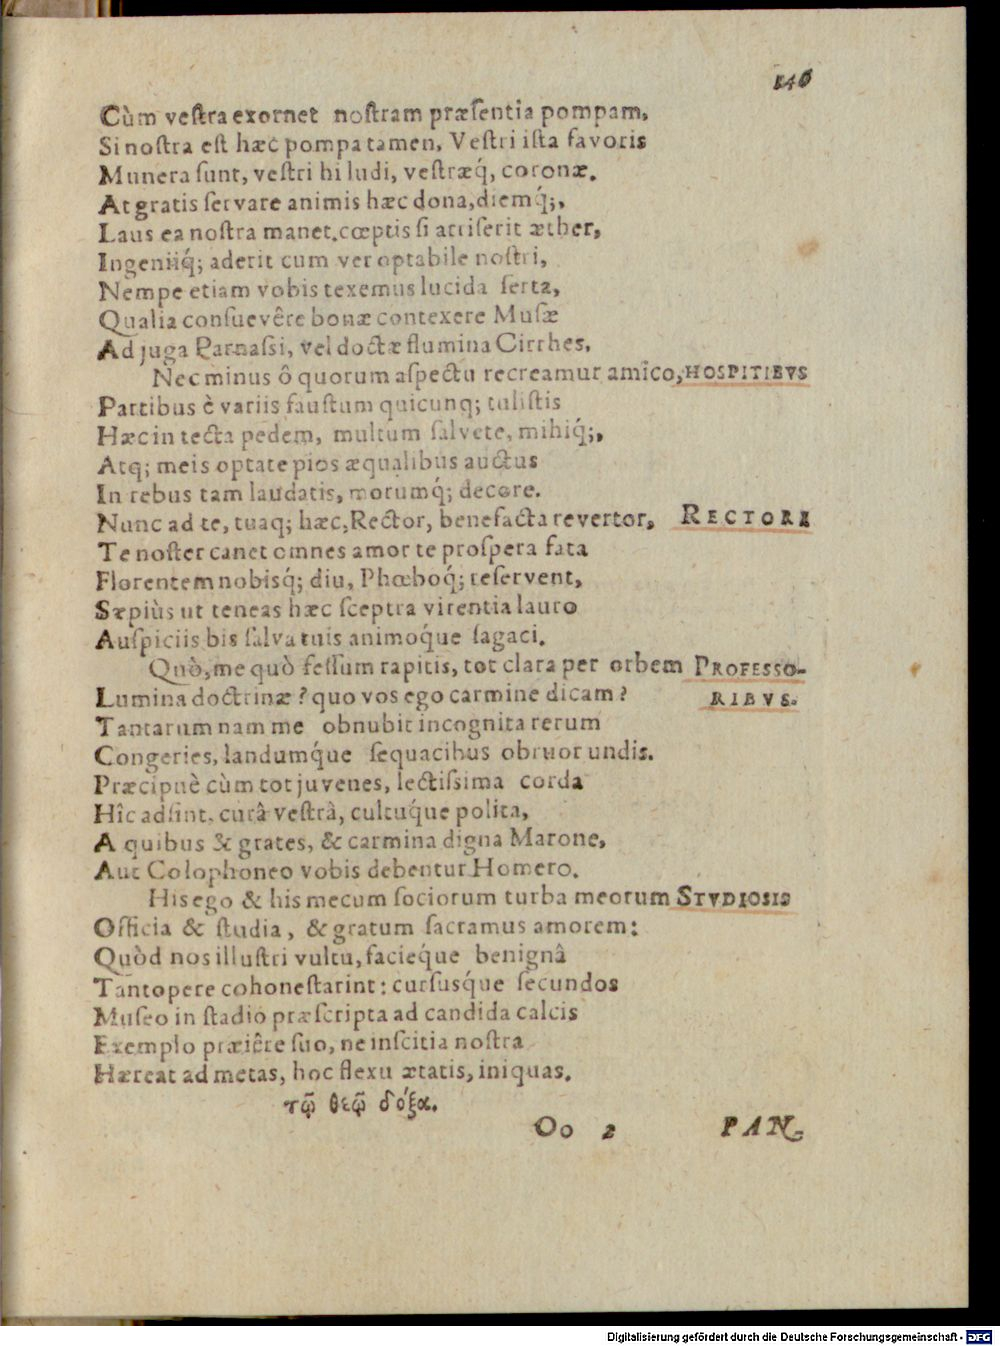 146
Cùm vestra exornet nostram præsentia pompam,
Si nostra est hæc pompa tamen, Vestri ista favoris
Munera sunt, vestri hi ludi, vestræq́, coronæ.
At gratis servare animis hæc dona, diemq́;,
Laus ea nostra manet. cœptis si arriserit æther,
Ingeniiq́; aderit cum ver optabile nostri,
Nempe etiam vobis texemus lucida serta,
Qualia consuevêre bonæ contexere Musæ
Ad juga Parnassi, vel doctæ flumina Cirrhes.
Nec minus ô quorum aspectu recreamur amico, HOSPITIBVS
Partibus è variis faustum quicunq; tulistis
Hæc in tecta pedem, multum salvete, mihiq́;,
Atq; meis optate pios æqualibus auctus
In rebus tam laudatis, morumq́; decore.
Nunc ad te, tuaq; hæc, Rector, benefacta revertor, RECTORI
Te noster canet omnes amor te prospera fata
Florentem nobisq́; diu, Phœboq́; reservent,
Sæpiùs ut teneas hæc sceptra virentia lauro
Auspiciis bis salva tuis animoq́ue sagaci.
Quò, me quò fessum rapitis, tot clara per orbem PROFESSO-
Lumina doctrinæ? quo vos ego carmine dicam? RIBVS.
Tantarum nam me obnubit incognita rerum
Congeries, landumq́ue sequacibus obruor undis.
Præcipuè cùm tot juvenes, lectissima corda
Hîc adsint, curâ vestrâ, cultuq́ue polita,
A quibus & grates, & carmina digna Marone,
Aut Colophoneo vobis debentur Homero.
His ego & his mecum sociorum turba meorum STVDIOSIS
Officia & studia, & gratum sacramus amorem:
Quòd nos illustri vultu, facieq́ue benignâ
Tantopere cohonestarint: cursusq́ue secundos
Museo in stadio præscripta ad candida calcis
Exemplo præiêre suo, ne inscitia nostra
Hæreat ad metas, hoc flexu ætatis, iniquas.
τῷ θεῷ δόξα.
Oo 2 PAN-
Digitalisierung gefördert durch die Deutsche Forschungsgemeinschaft - DFG